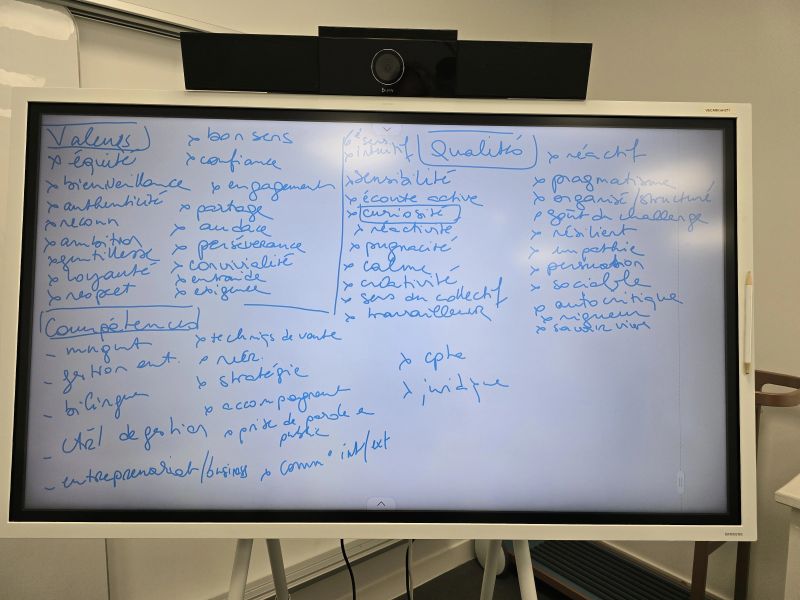 Valeurs
× équité
× bienveillance
× authenticité
× reconn
× ambition
× gentillesse
× loyauté
× respect
× bon sens
× confiance
× engagement
× partage
× audace
× persévérance
× convivialité
× entraide
× exigence
Qualités
× intuitif
× sensibilité
× écoute active
× curiosité
× réactivité
× pugnacité
× calme
× créativité
× sens du collectif
× travailleur
× réactif
× pragmatisme
× organisé/structuré
× goût du challenge
× résilient
× empathie
× persuasion
× sociable
× autocritique
× rigueur
× savoir vivre
Compétences
- mngmt
- gestion ent.
- bilingue
- ctrôl de gestion
- entreprenariat/business
× techniqs de vente
× stratégie
× accompagnemt
× prise de parole en public
× comm° int/ext
× cpta
× juridique
SAMSUNG